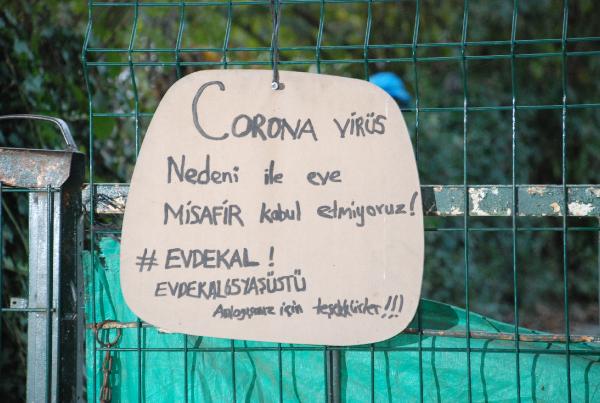 CORONA VİRÜS
Nedeni ile eve
MİSAFİR kabul etmiyoruz!
#EVDEKAL!
EVDEKAL65YAŞÜSTÜ
için teşekkürler!!!)